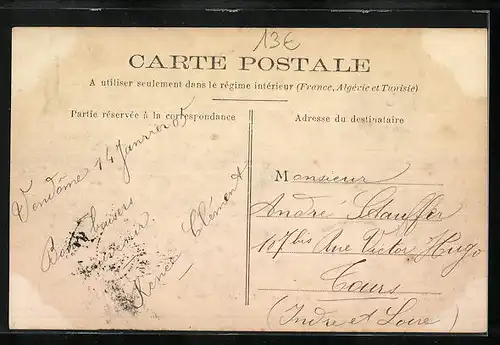 13€
CARTE POSTALE
A utiliser seulement dans le régime intérieur (France, Algérie et Tunisie)
Partie réservée à la correspondance
Adresse du destinataire
Vendôme 14 Janvier 05
Bons baisers
Clément
Monsieur
André
107bis Rue Victor Hugo
Tours
(Indre et Loire)